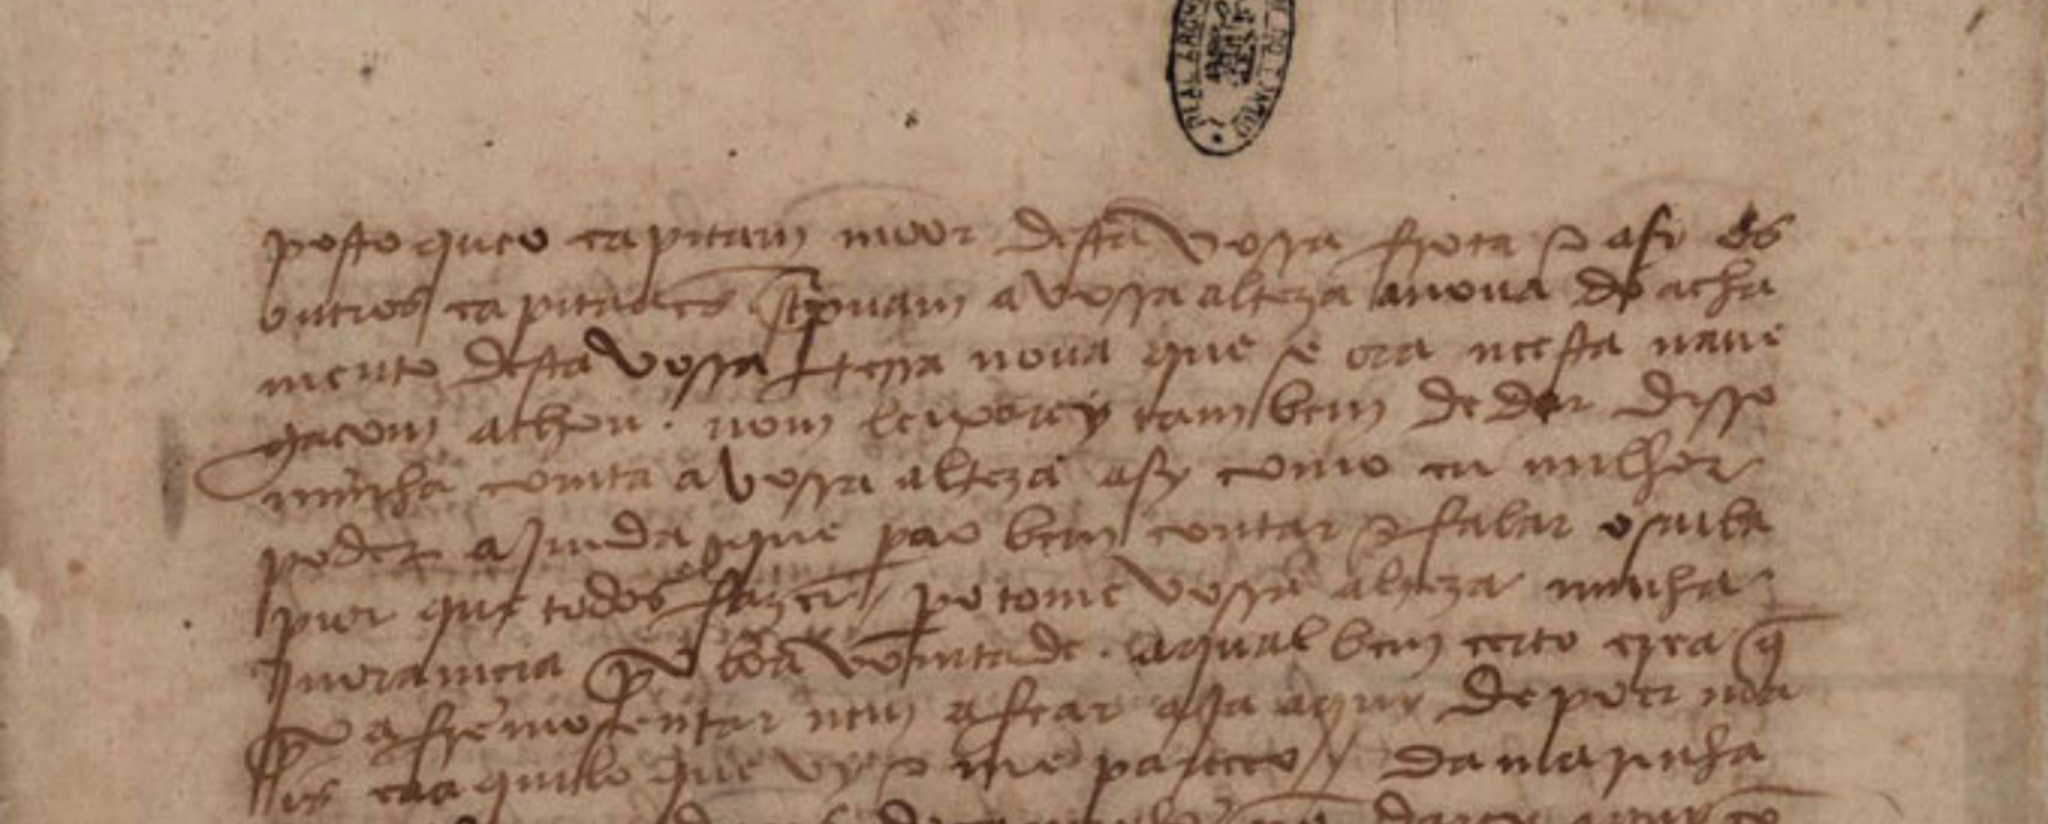 REAL ARQ
posto queo capitam moor desta vossa frota e asy os
outros capitaães screpuam a vossa alteza anoua do acha
mento desta vossa terra noua que se ora neesta naue
gaçom achou. nom leixarey tambem de dar disso
minha comta a vossa alteza asy como eu milhor
poder ajmda que pera o bem contar e falar o saiba
pior que todos fazer. pero tome vossa alteza minha
jnoramçia por boa vomtade. aqual bem certo crea q̃
por afremosentar nem afear aja aquy de poer ma
is ca aquilo que vy e me pareçeo // da marinha